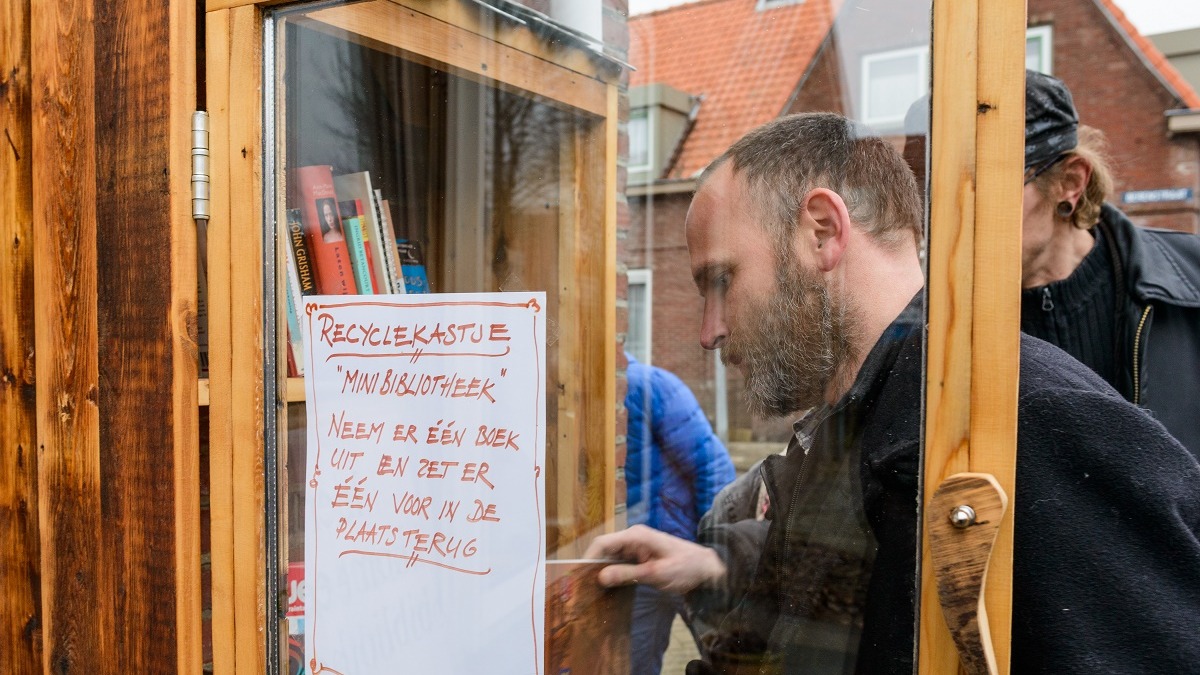 JOHN GRISHAM
RECYCLEKASTJE
"MINIBIBLIOTHEEK"
NEEM ER ÉÉN BOEK
UIT EN ZET ER
ÉÉN VOOR IN DE
PLAATS TERUG